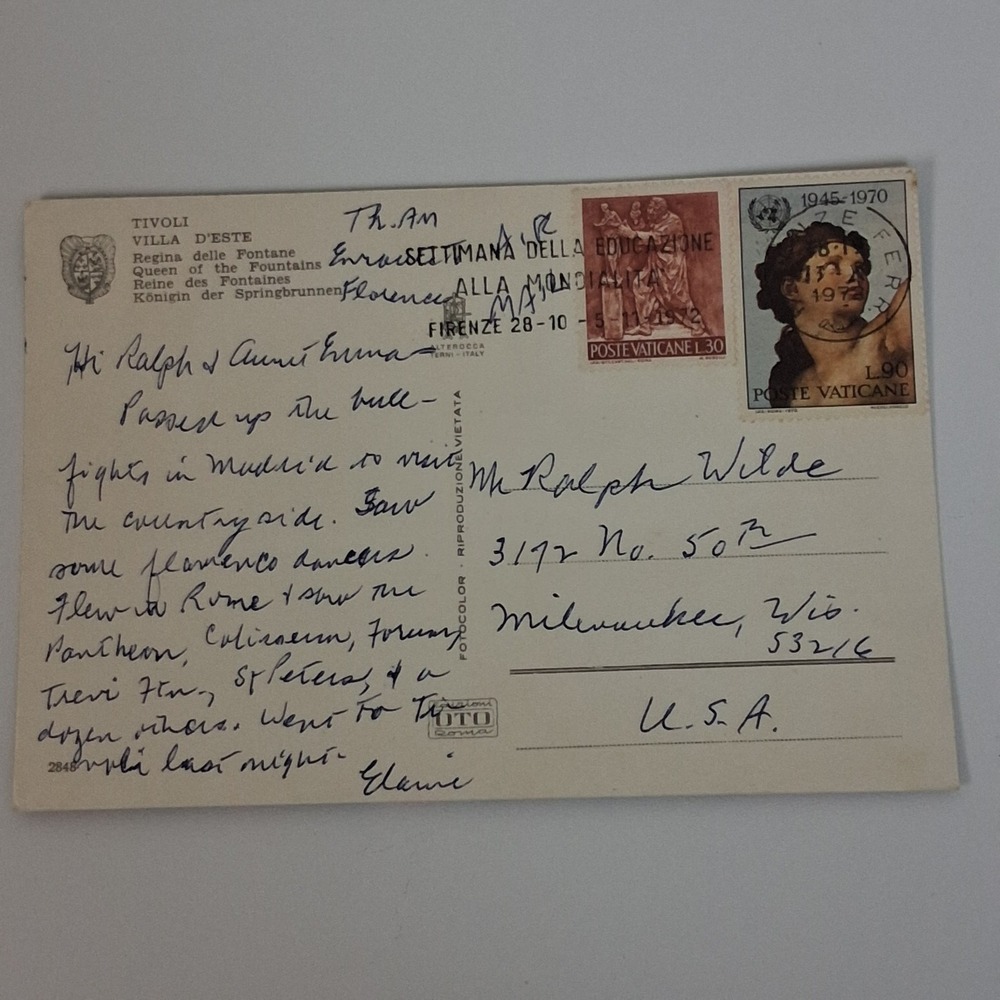 TIVOLI
VILLA D'ESTE
Regina delle Fontane
Queen of the Fountains
Reine des Fontaines
Königin der Springbrunnen
Th. AM
Enroute
Florence
AIR
MAIL
Hi Ralph & Aunt Emma—
Passed up the bull-
fights in Madrid to visit
the countryside. Saw
some flamenco dancers.
Flew to Rome & saw the
Pantheon, Coliseum, Forum,
Trevi Ftn., St Peters, & a
dozen others. Went to Ti-
voli last night.
Elaine
2848
ALTEROCCA
TERNI - ITALY
FOTOCOLOR - RIPRODUZIONE VIETATA
OTO
Roma
SETTIMANA DELLA EDUCAZIONE
ALLA MONDIALITA
FIRENZE 28-10 - 5-11-1972
POSTE VATICANE L.30
1945-1970
L.90
POSTE VATICANE
FERR
1972
Mr Ralph Wilde
3172 No. 50th
Milwaukee, Wis.
53216
U.S.A.